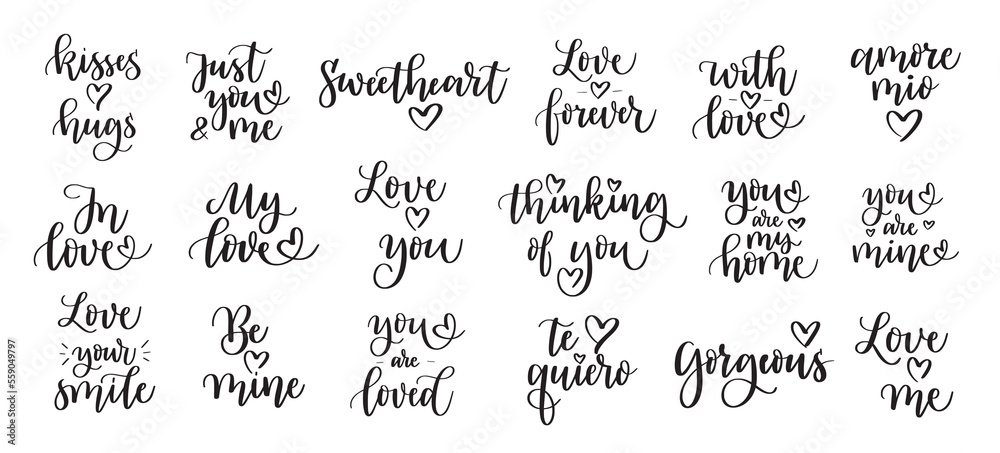 kisses
hugs
Just
you
& me
Sweetheart
Love
forever
with
love
amore
mio
In
love
My
love
Love
you
thinking
of you
you
are
my
home
you
are
mine
Love
your
smile
Be
mine
you
are
loved
te
quiero
Gorgeous
Love
me
Adobe Stock | #559049797